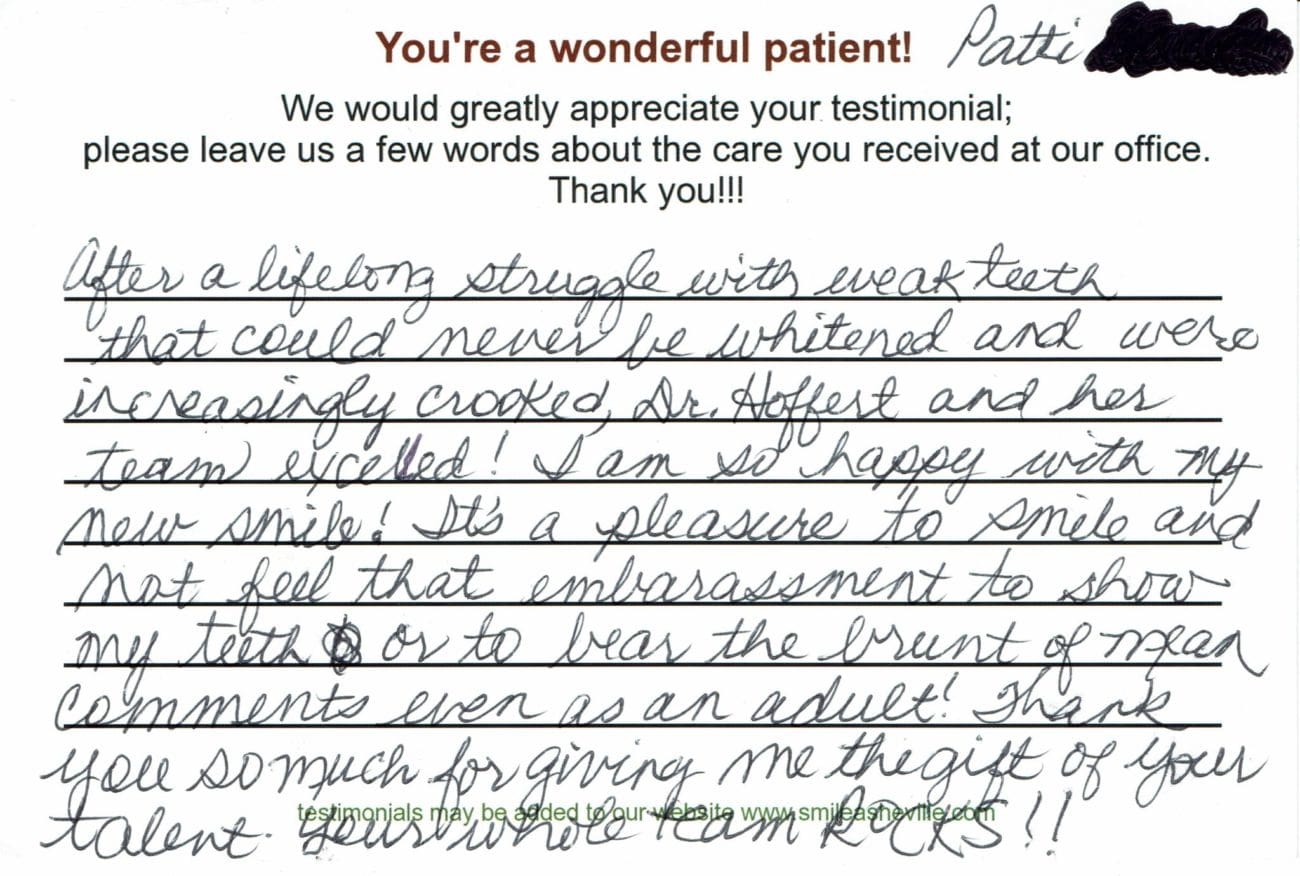 You're a wonderful patient! Patti
We would greatly appreciate your testimonial;
please leave us a few words about the care you received at our office.
Thank you!!!
After a lifelong struggle with weak teeth
that could never be whitened and were
increasingly crooked, Dr. Hoffert and her
team excelled! I am so happy with my
new smile! It's a pleasure to smile and
not feel that embarassment to show
my teeth or to bear the brunt of mean
comments even as an adult! Thank
you so much for giving me the gift of your
testimonials may be added to our website www.smileasheville.com
talent. Your whole team ROCKS!!